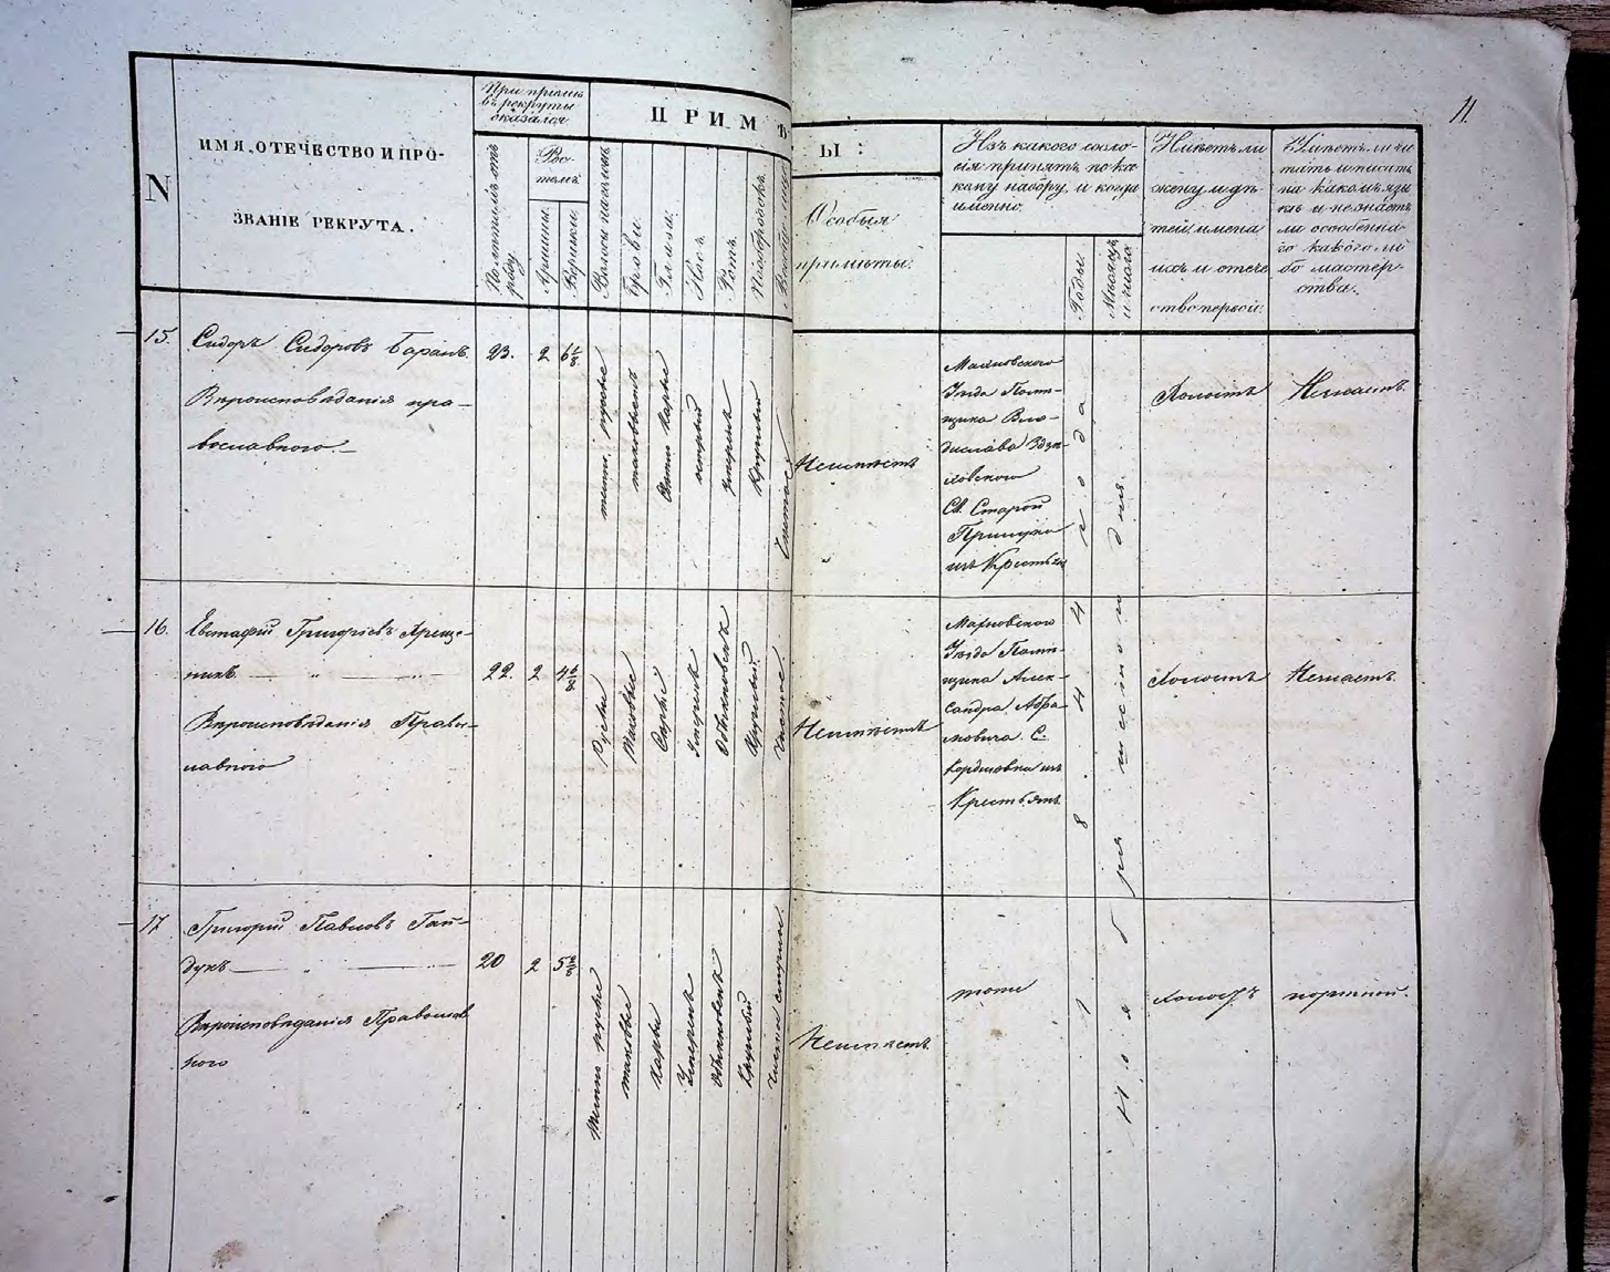 11
N
ИМЯ, ОТЕЧЕСТВО И ПРО-
ЗВАНІЕ РЕКРУТА.
При пріемѣ
въ рекруты
оказался
По лѣтамъ отъ
роду
Рос-
томъ
Аршины.
Вершки.
ПРИМѢ
Ы :
Брови.
Глаза.
Носъ.
Ротъ.
Подбородокъ.
Особыя
примѣты.
Изъ какого сосло-
сія принятъ по ка-
кому набору, и когда
именно.
Годы.
Мѣсяцъ
и число
Имѣетъ ли
жену и дѣ-
тей имена
ихъ и отече
ство первой.
Умѣетъ ли чи
тать и писать
на какомъ язы
кѣ и не знаетъ
ли особенна-
го какого ли
бо мастер-
ства.
15.
Сидоръ Сидоровъ Баранъ.
Вѣроисповѣданія пра-
вославнаго.
23.
2
6 1/8
темно русые
таковыежъ
Свѣтло Каріе
острый
умѣрен
Круглый
Чистое
Неимѣетъ
Махновского
Уѣзда Помѣ-
щика Вла-
дислава
Сл. Старой
Прилуки
изъ Крестьян
Холостъ
Незнаетъ.
16.
Евстафій Григорьевъ
никъ
Вѣроисповѣданія Правос-
лавного
22.
2
4 6/8
Русые
Таковые
Сѣрые
Умѣрен
Обыкновен
Круглый
Чистое
Неимѣетъ
Махновского
Уѣзда Помѣ-
щика Алек-
сандра Абра-
мовича С.
Кордышовка изъ
Крестьянъ
Холостъ
Незнаетъ.
17
Григорій Павловъ Гай-
дукъ
Вѣроисповѣданія Православ
ного
20
2
5 2/8
Темно русые
таковые
Каріе
Умѣрен
Обыкновен
Круглый
Чистое смуглое
Неимѣетъ.
тоже
Холостъ
портной.
1844 года
Ноября шестого дня.